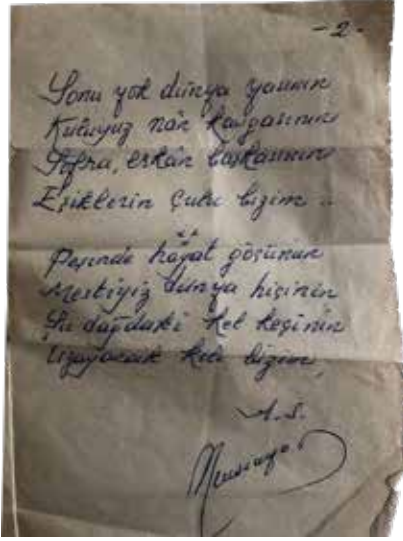 -2-
Sonu yok dünya yasının
Kuluyuz nân kavgasının
Sofra, erkân başkasının
Eşiklerin Çulu bizim ..
Peşinde hayat göçünün
Mestiyiz dünya hiçinin
Şu dağdaki kel keçinin
Uzayacak kılı bizim
A.S.